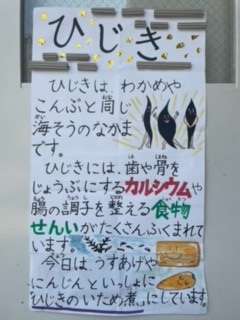 ひじき
ひじきは、わかめや
こんぶと同じ
海そうのなかま
です。
ひじきには、歯や骨を
じょうぶにするカルシウムや
腸の調子を整える食物
せんいがたくさんふくまれて
います。
今日は、うすあげや
にんじんといっしょに
ひじきのいため煮にしています。